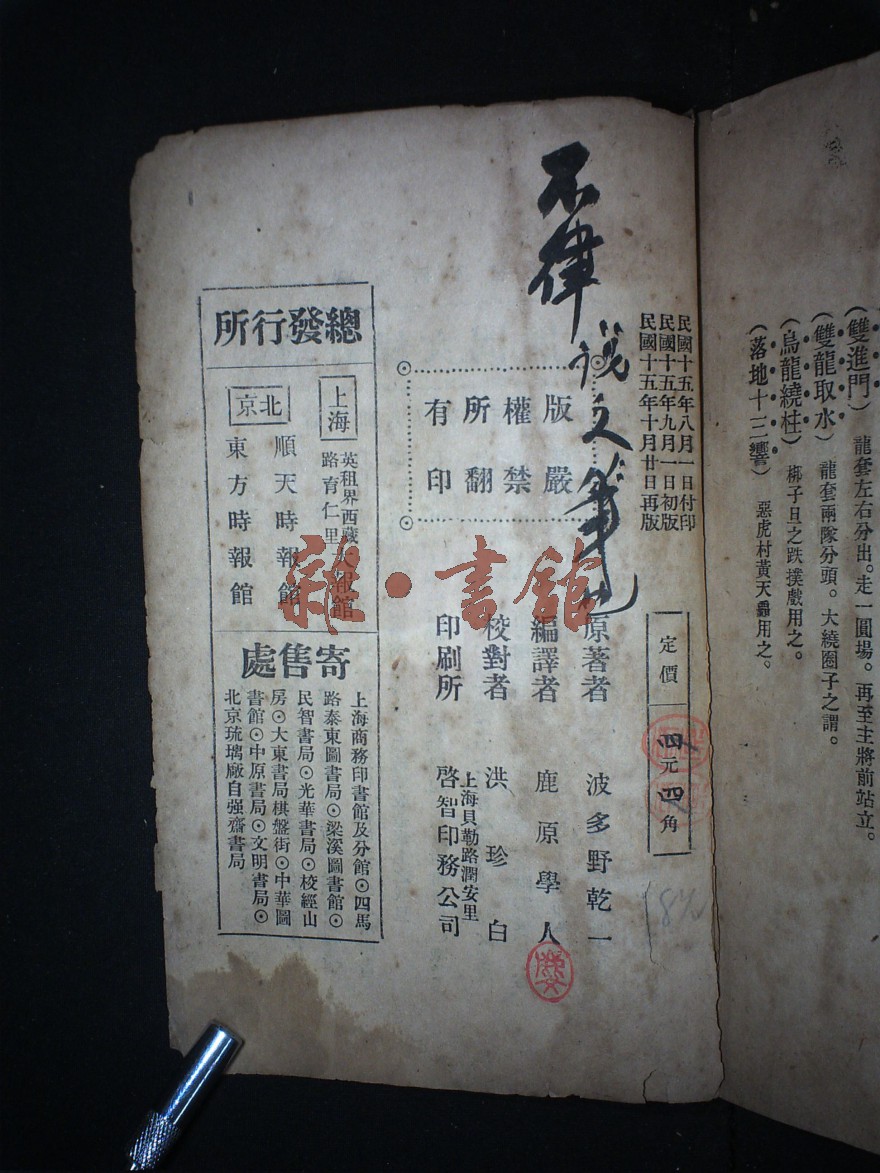 (雙進門) 龍套左右分出。走一圓場。再至主將前站立。
(雙龍取水) 龍套兩隊分頭。大繞圈子之謂。
(烏龍繞柱) 梆子旦之跌撲戲用之。
(落地十三響) 惡虎村黃天霸用之。
民國十五年八月一日付印
民國十五年九月一日初版
民國十五年十月廿日再版
定價 四元四角
不律
說文筆也
版權所有
嚴禁翻印
原著者 波多野乾一
編譯者 鹿原學人
校對者 洪珍白
印刷所 上海貝勒路潤安里
啓智印務公司
總發行所
上海
英租界西藏
路育仁里
大報館
北京
順天時報館
東方時報館
寄售處
上海商務印書館及分館⊙四馬
路泰東圖書局⊙梁溪圖書館⊙
民智書局⊙光華書局⊙校經山
房⊙大東書局棋盤街⊙中華圖
書館⊙中原書局⊙文明書局⊙
北京琉璃廠自强齋書局
雜·書館